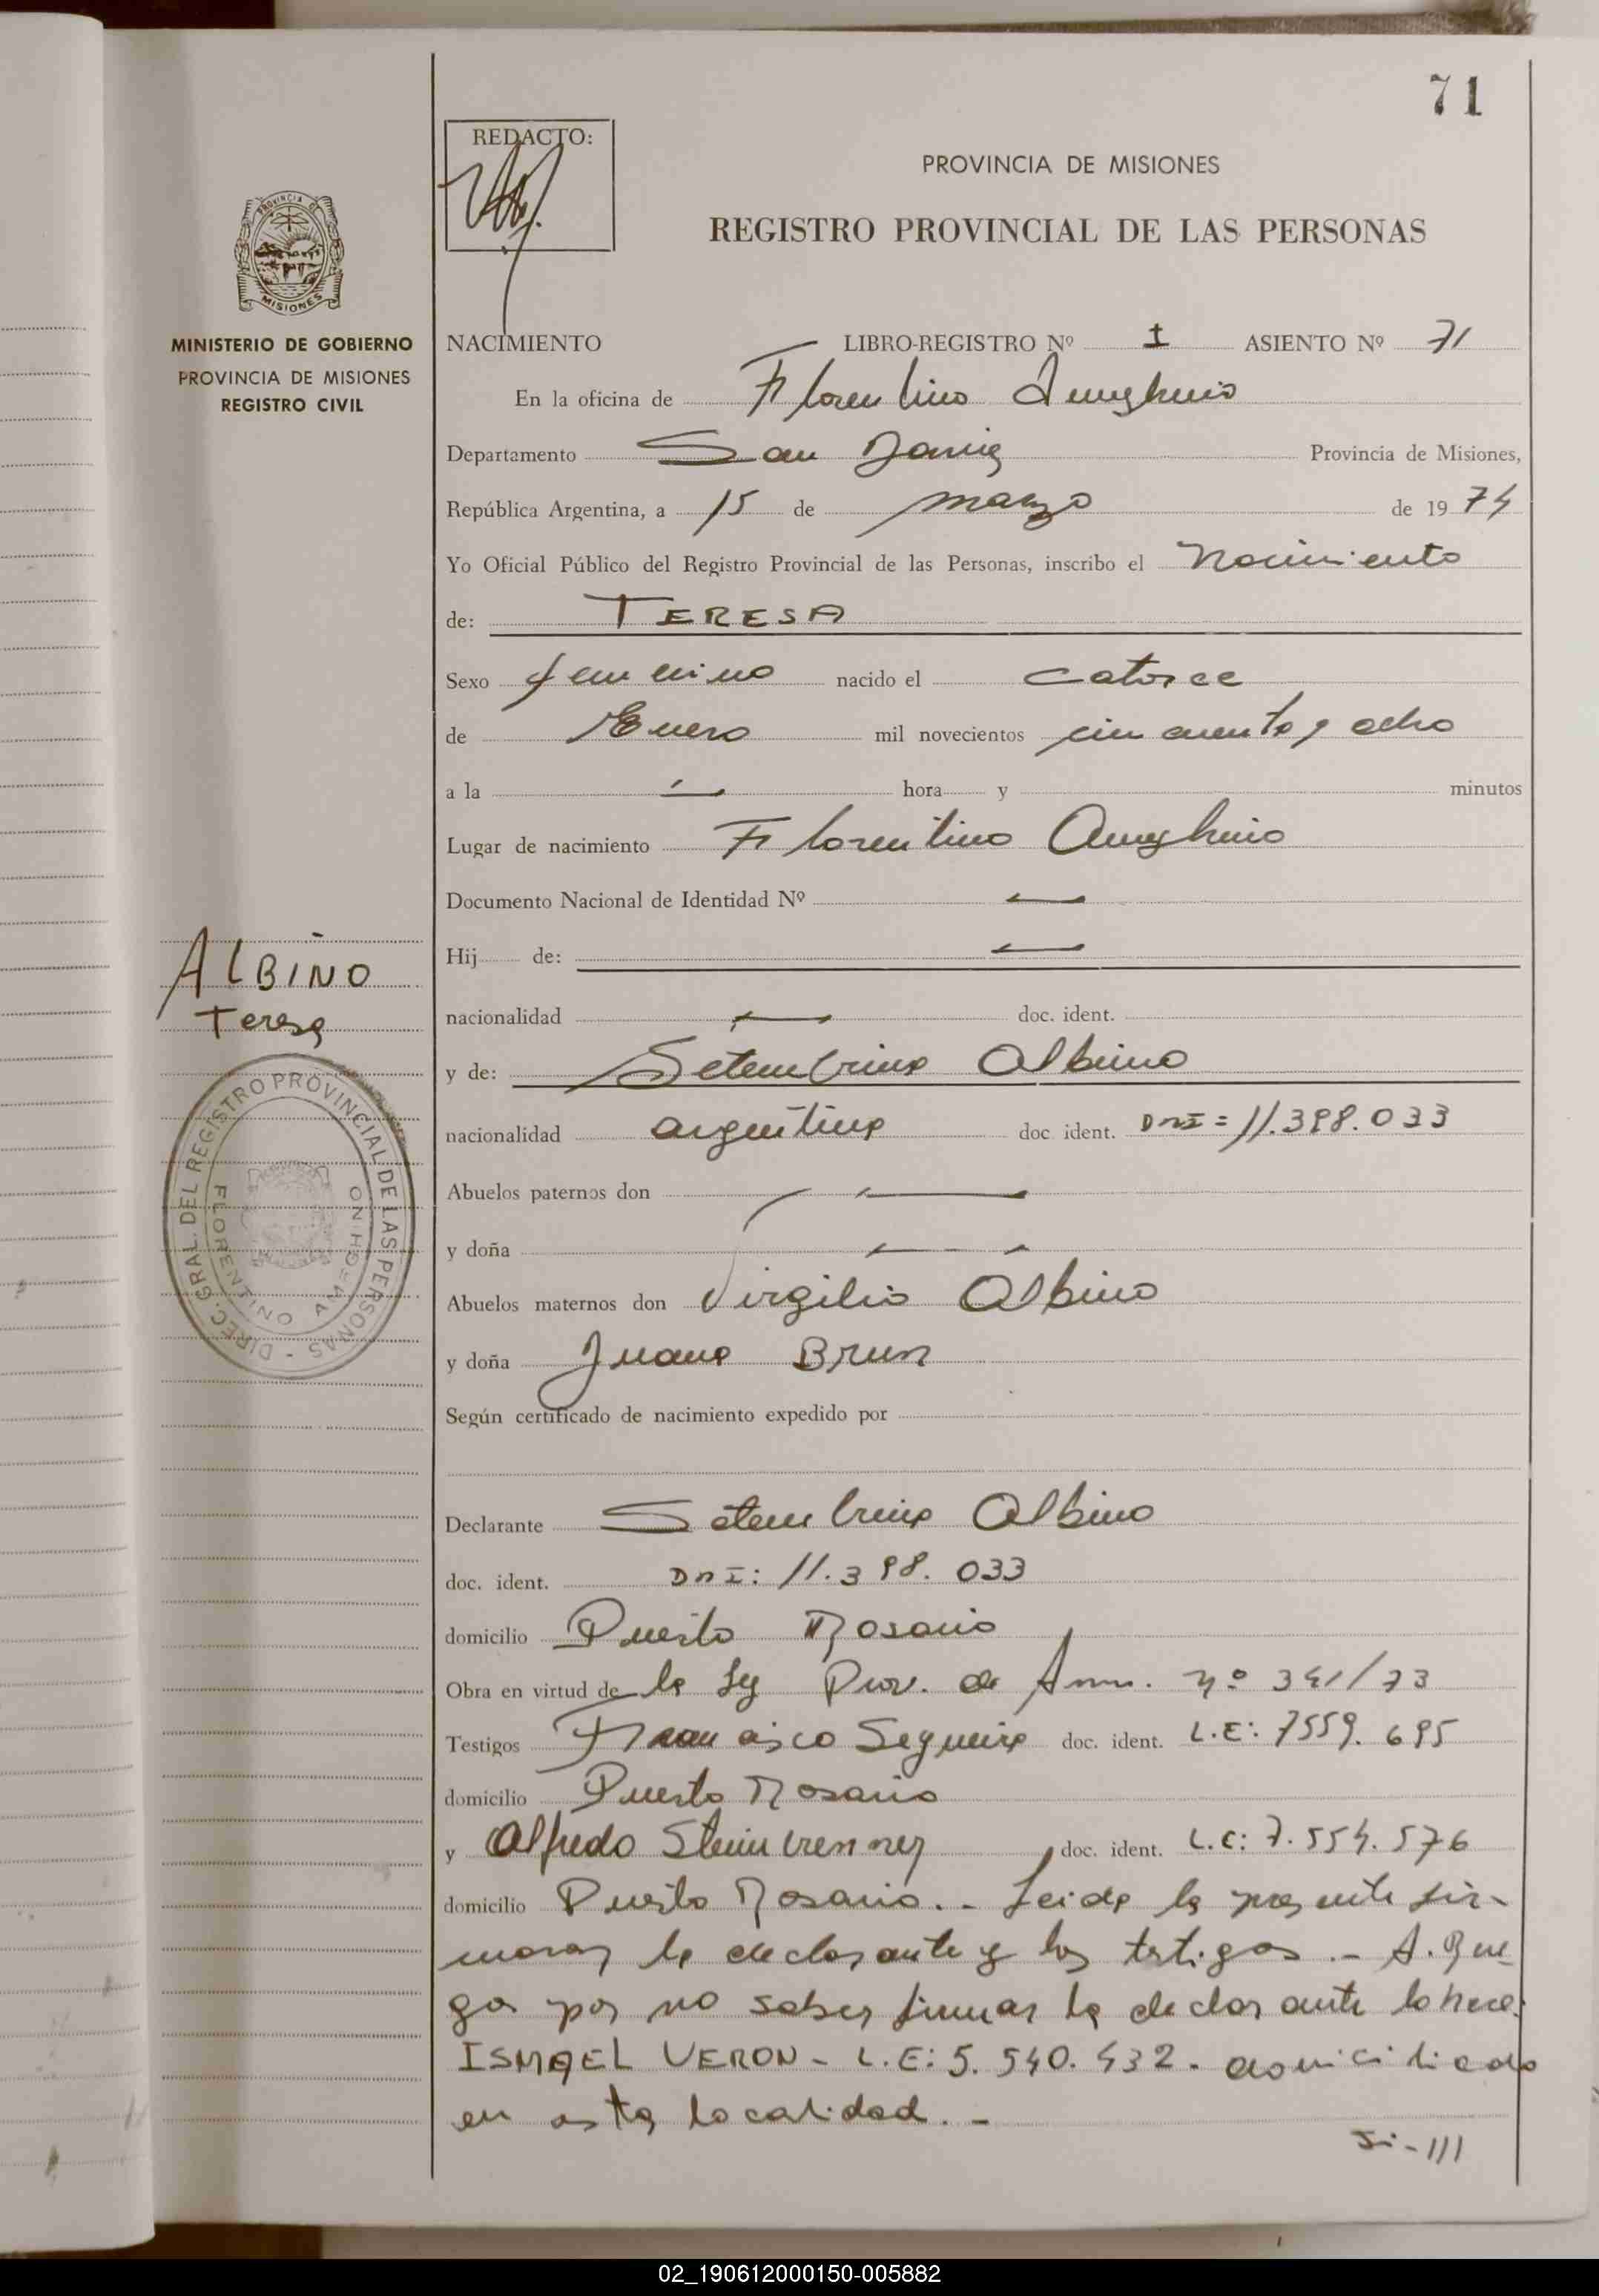 71
REDACTO:
PROVINCIA DE MISIONES
REGISTRO PROVINCIAL DE LAS PERSONAS
PROVINCIA DE
MISIONES
MINISTERIO DE GOBIERNO
PROVINCIA DE MISIONES
REGISTRO CIVIL
NACIMIENTO LIBRO-REGISTRO Nº I ASIENTO Nº 71
En la oficina de Florentino Ameghino
Departamento San Javier Provincia de Misiones,
República Argentina, a 15 de marzo de 1974
Yo Oficial Público del Registro Provincial de las Personas, inscribo el Nacimiento
de: TERESA
Sexo femenino nacido el catorce
de Enero mil novecientos cincuenta y ocho
a la — hora y minutos
Lugar de nacimiento Florentino Ameghino
Documento Nacional de Identidad Nº —
Hij de: —
ALBINO
Teresa
nacionalidad — doc. ident.
y de: Setembrina Albino
nacionalidad argentina doc. ident. DNI = 11.398.033
Abuelos paternos don —
y doña —
Abuelos maternos don Virgilio Albino
y doña Juana Brun
DIREC. GRAL. DEL REGISTRO PROVINCIAL DE LAS PERSONAS -
FLORENTINO AMEGHINO
Según certificado de nacimiento expedido por
Declarante Setembrina Albino
doc. ident. DNI: 11.398.033
domicilio Puerto Rosario
Obra en virtud de la Ley Prov. de Amn. nº 341/73
Testigos Francisco Segueira doc. ident. L.E: 7559.695
domicilio Puerto Rosario
y Alfredo Steinbrenner doc. ident. L.E: 7.554.576
domicilio Puerto Rosario.- Leida la presente fir-
maron la declarante y los testigos.- A. Rue-
go por no saber firmar la declarante lo hace
ISMAEL VERON - L.E: 5.540.432. domiciliado
en esta localidad.-
Si-///
02_190612000150-005882